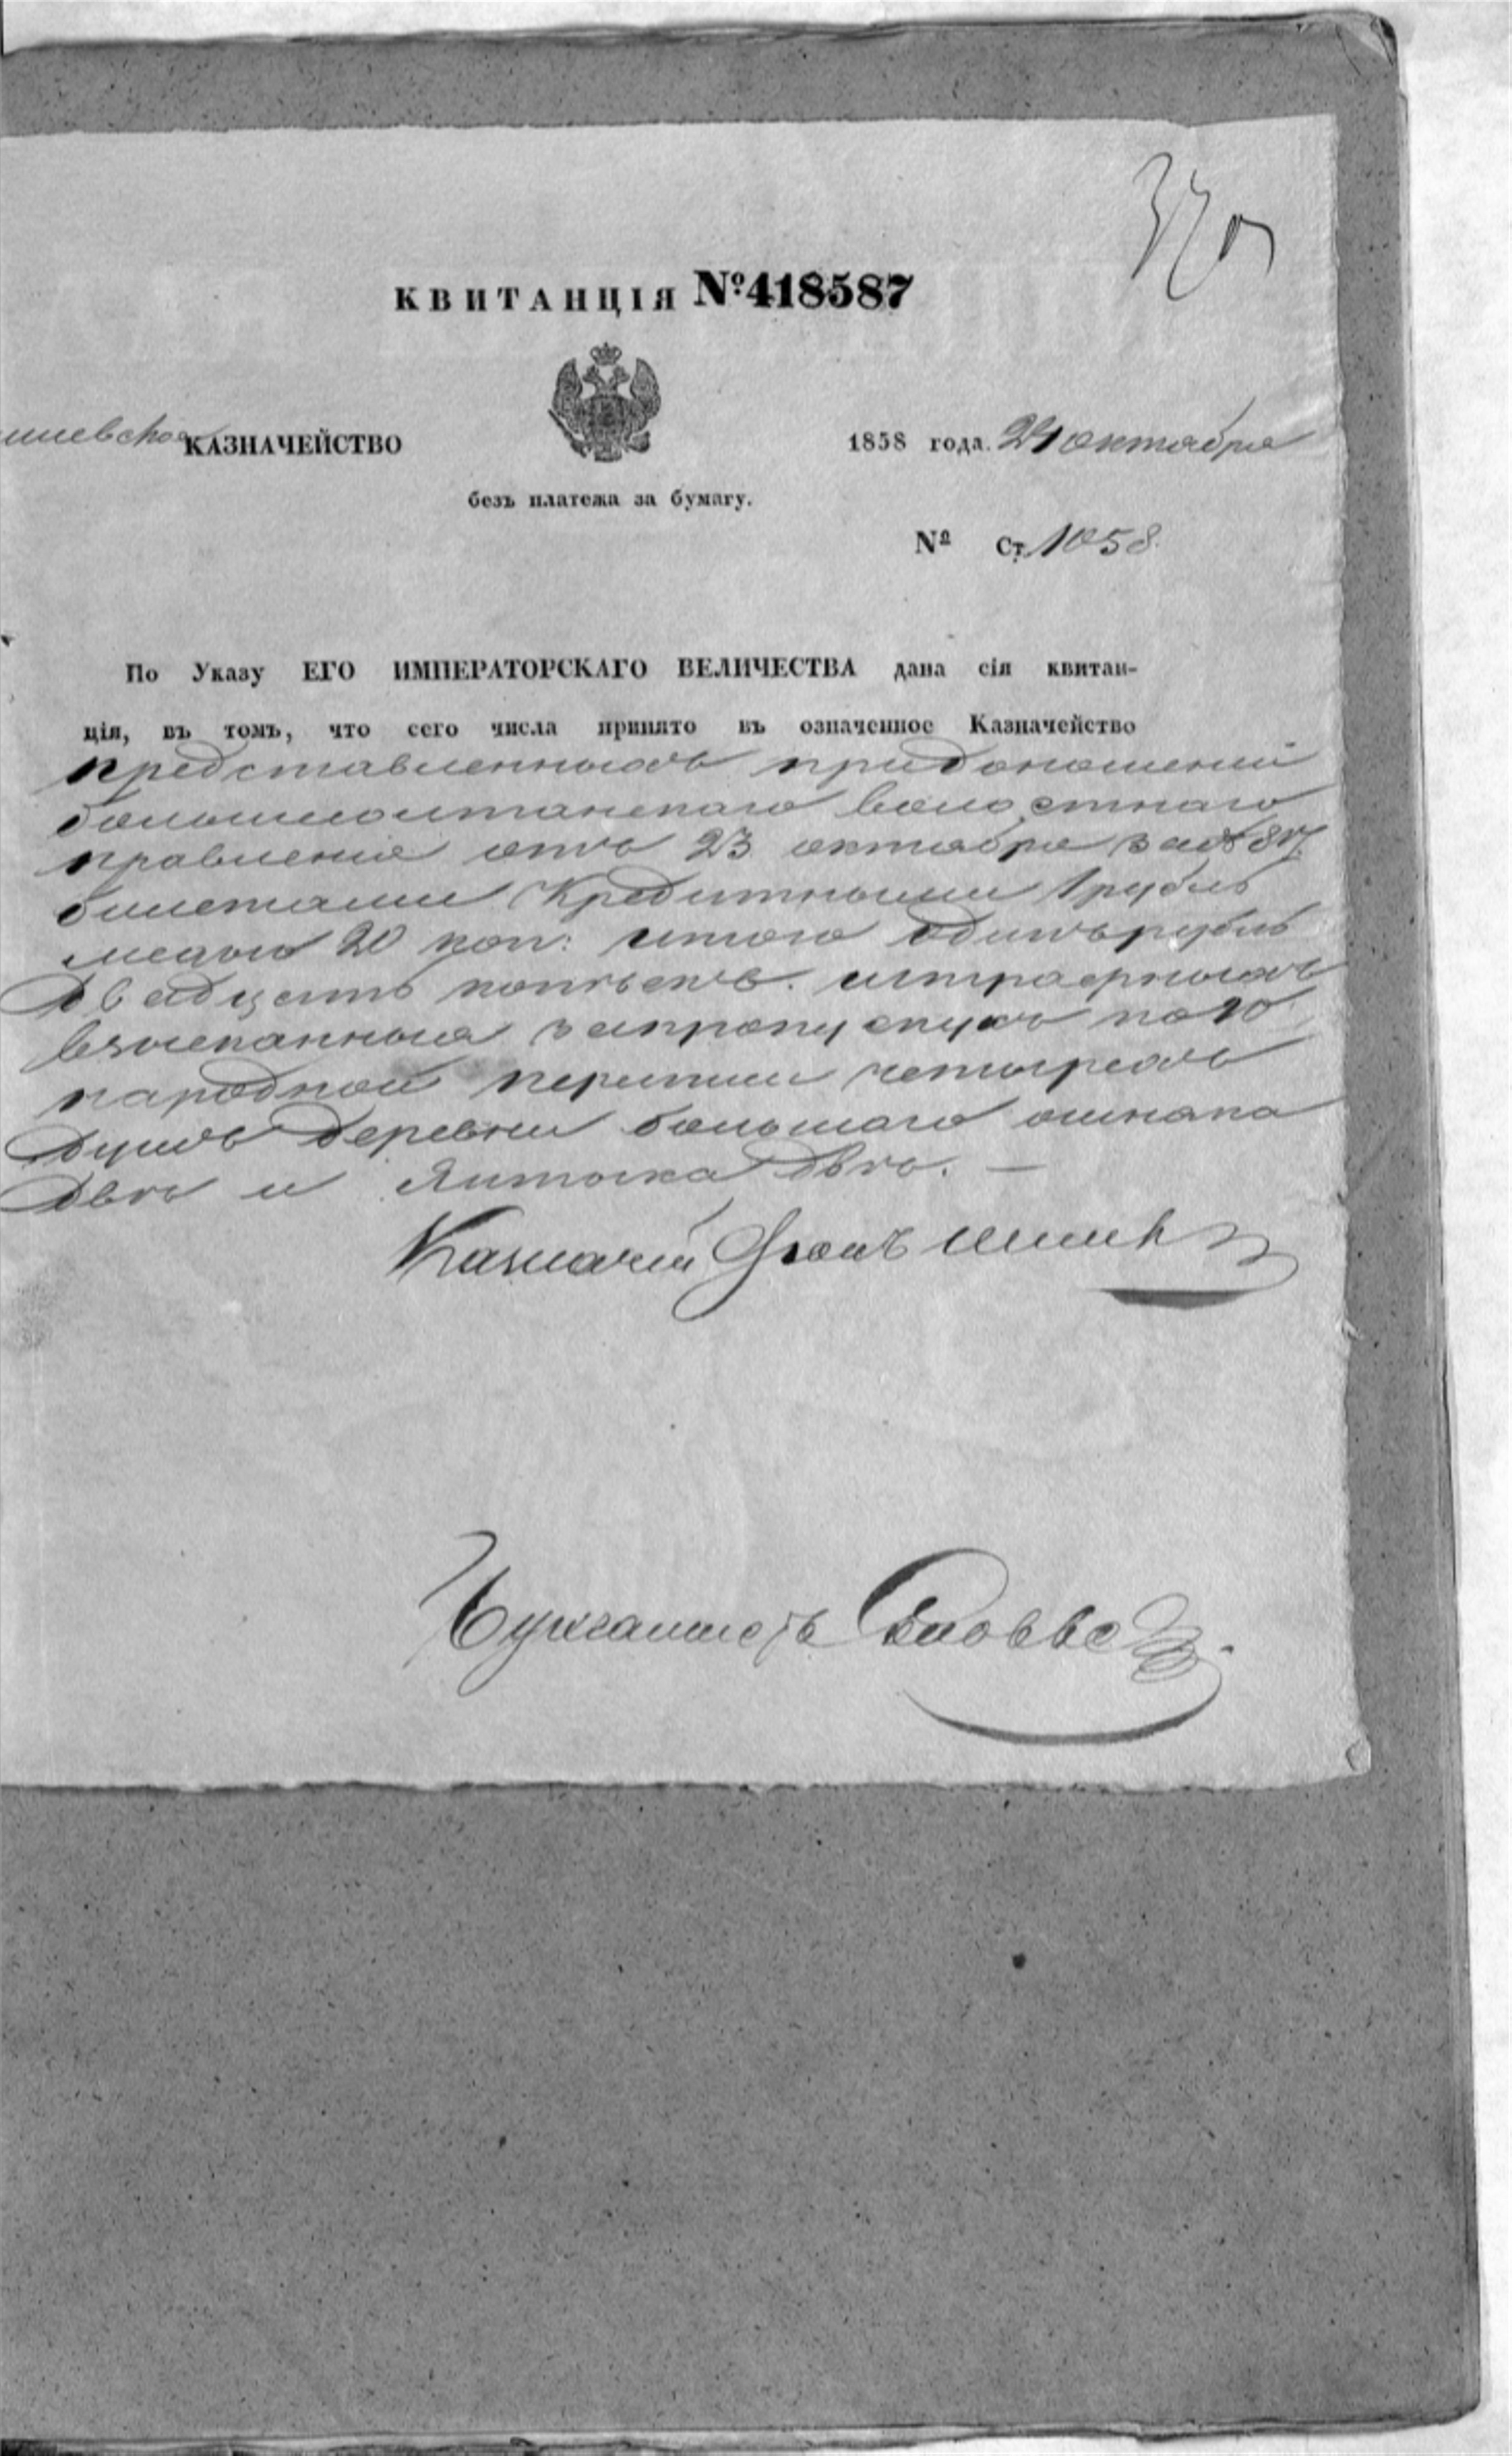 КВИТАНЦІЯ №418587
КАЗНАЧЕЙСТВО
1858 года. октября
безъ платежа за бумагу.
№ Ст. 1058
По Указу ЕГО ИМПЕРАТОРСКАГО ВЕЛИЧЕСТВА дана сія квитан-
ція, въ томъ, что сего числа принято въ означенное Казначейство
представленныхъ придоношеніи
волостнаго
правленія отъ 23 октября за № 817.
билетами Кредитными 1 рубль
медью 20 коп: итого одинъ рубль
двадцать копѣекъ. штрафныхъ
взысканныя запропускъ по 10
народной переписи четырехъ
душъ деревни большаго
двѣ и двѣ. —
Казначей Фонъ
Бухгалтеръ